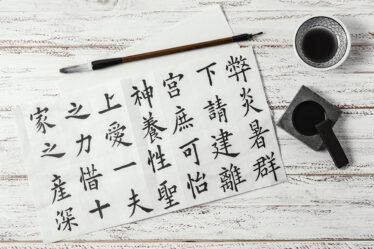 弊炎暑群
下請建離
宮庶可怡
神養性聖
上愛一夫
之力借十
家之産深